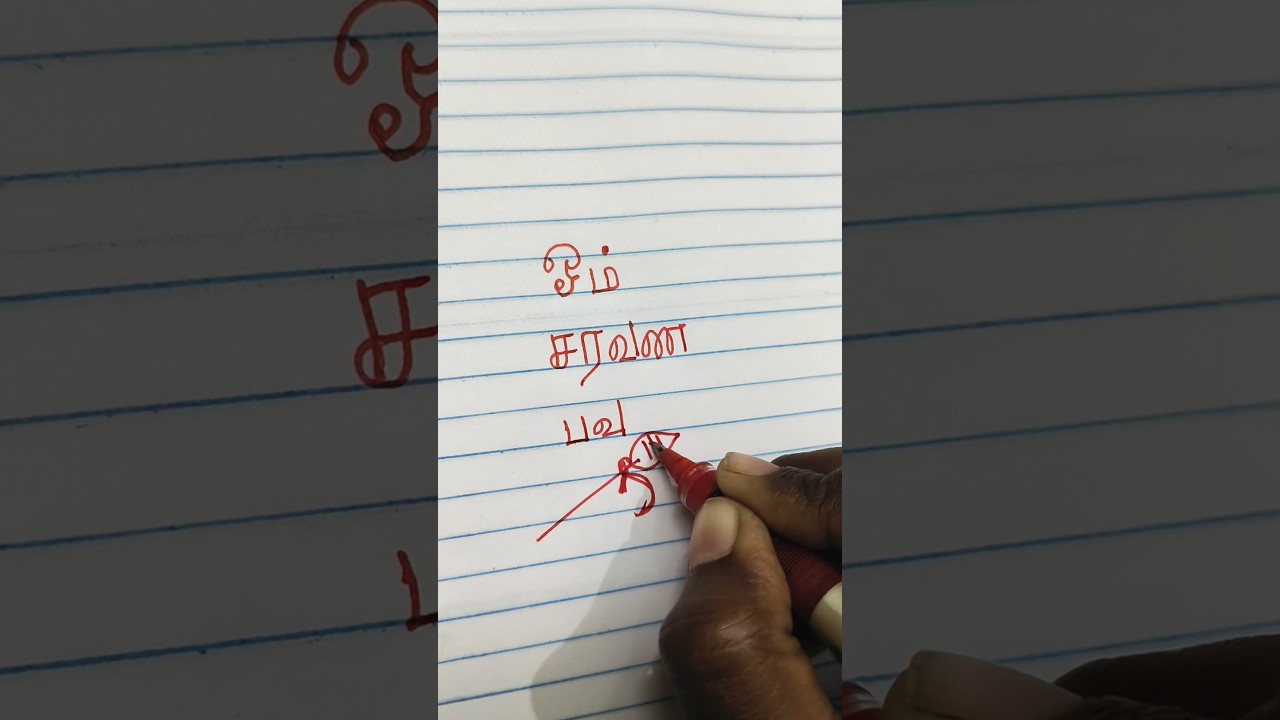 ஓம்
சரவண
பவ